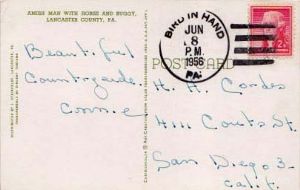 AMISH MAN WITH HORSE AND BUGGY,
LANCASTER COUNTY, PA.
BIRD IN HAND
JUN
8
P.M.
1956
PA.
2¢
POST CARD
Beautiful
Countryside.
Connie
H. H. Cordes
4111 Courts St.
San Diego 3
Calif.